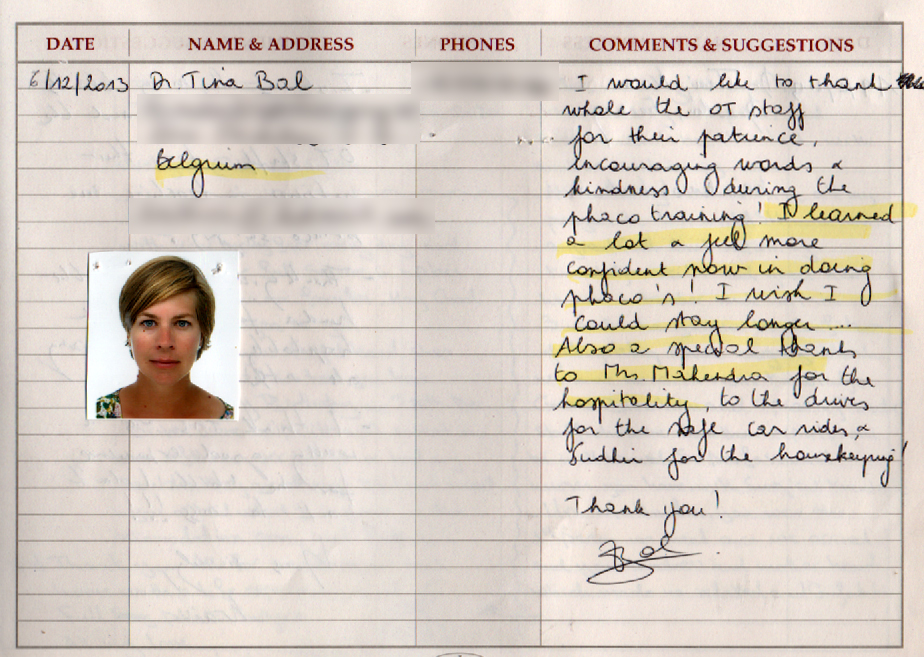 DATE NAME & ADDRESS PHONES COMMENTS & SUGGESTIONS
6/12/2013 Dr. Tina Bal
Belgium
I would like to thank
whole the OT staff
for their patience,
encouraging words &
kindness during the
phaco training! I learned
a lot & feel more
confident now in doing
phaco's! I wish I
could stay longer ....
Also a special thanks
to Mrs. Mahendra for the
hospitality, to the drivers
for the safe car rides, &
Sudhir for the housekeeping!
Thank you!
Bal